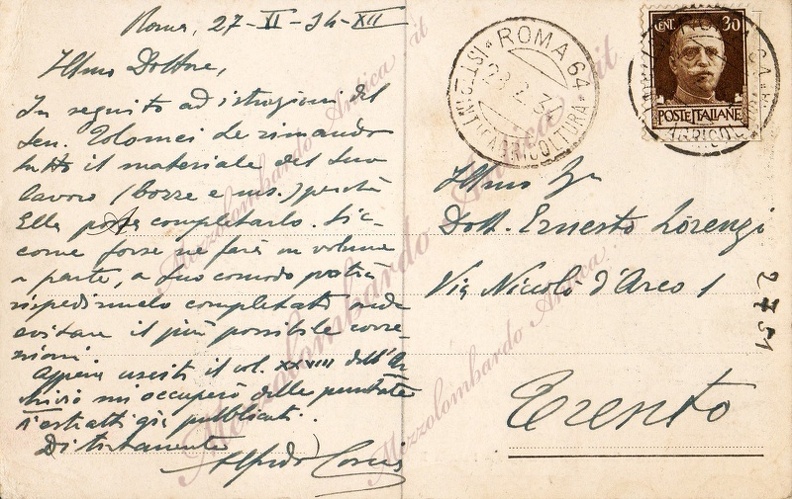 Roma, 27-II-34-XII
Illmo Dottore,
In seguito ad istruzioni del
Sen. Tolomei Le rimando
tutto il materiale del Suo
lavoro (bozze e ms.) perché
Ella possa completarlo. Sic-
come forse ne farà un volume
a parte, a Suo comodo potrà
rispedirmelo completato onde
evitare il più possibile corre-
zioni.
Appena uscito il vol. XXVIII dell'Ar-
chivio mi occuperò delle puntate
d'estratti già pubblicati.
Distintamente
Alfredo
ROMA 64
28.2.34
AGRICOLTURA
CENT. 30
POSTE ITALIANE
Illmo Sig.
Dott. Ernesto Lorenzi
Via Niccolò d'Arco 1
Trento
2751
Mezzolombardo Antica.it
Mezzolombardo Antica.it
Mezzolombardo Antica.it